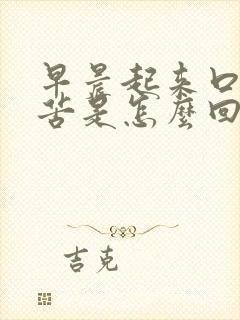 早晨起来口
苦是怎麼回
吉克